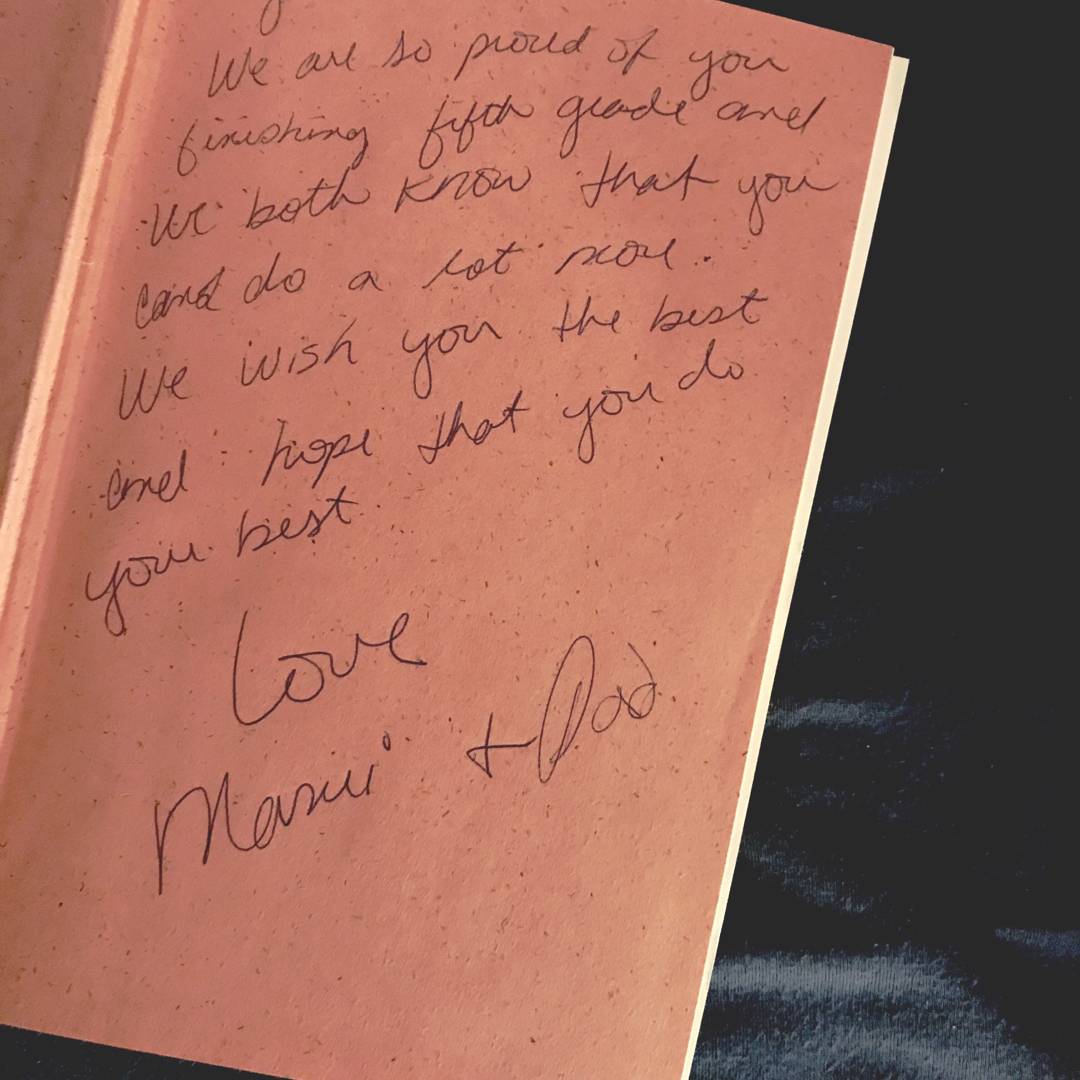 We are so proud of you
finishing fifth grade and
we both know that you
can do a lot more.
We wish you the best
and hope that you do
your best.
Love
Mami + Dad